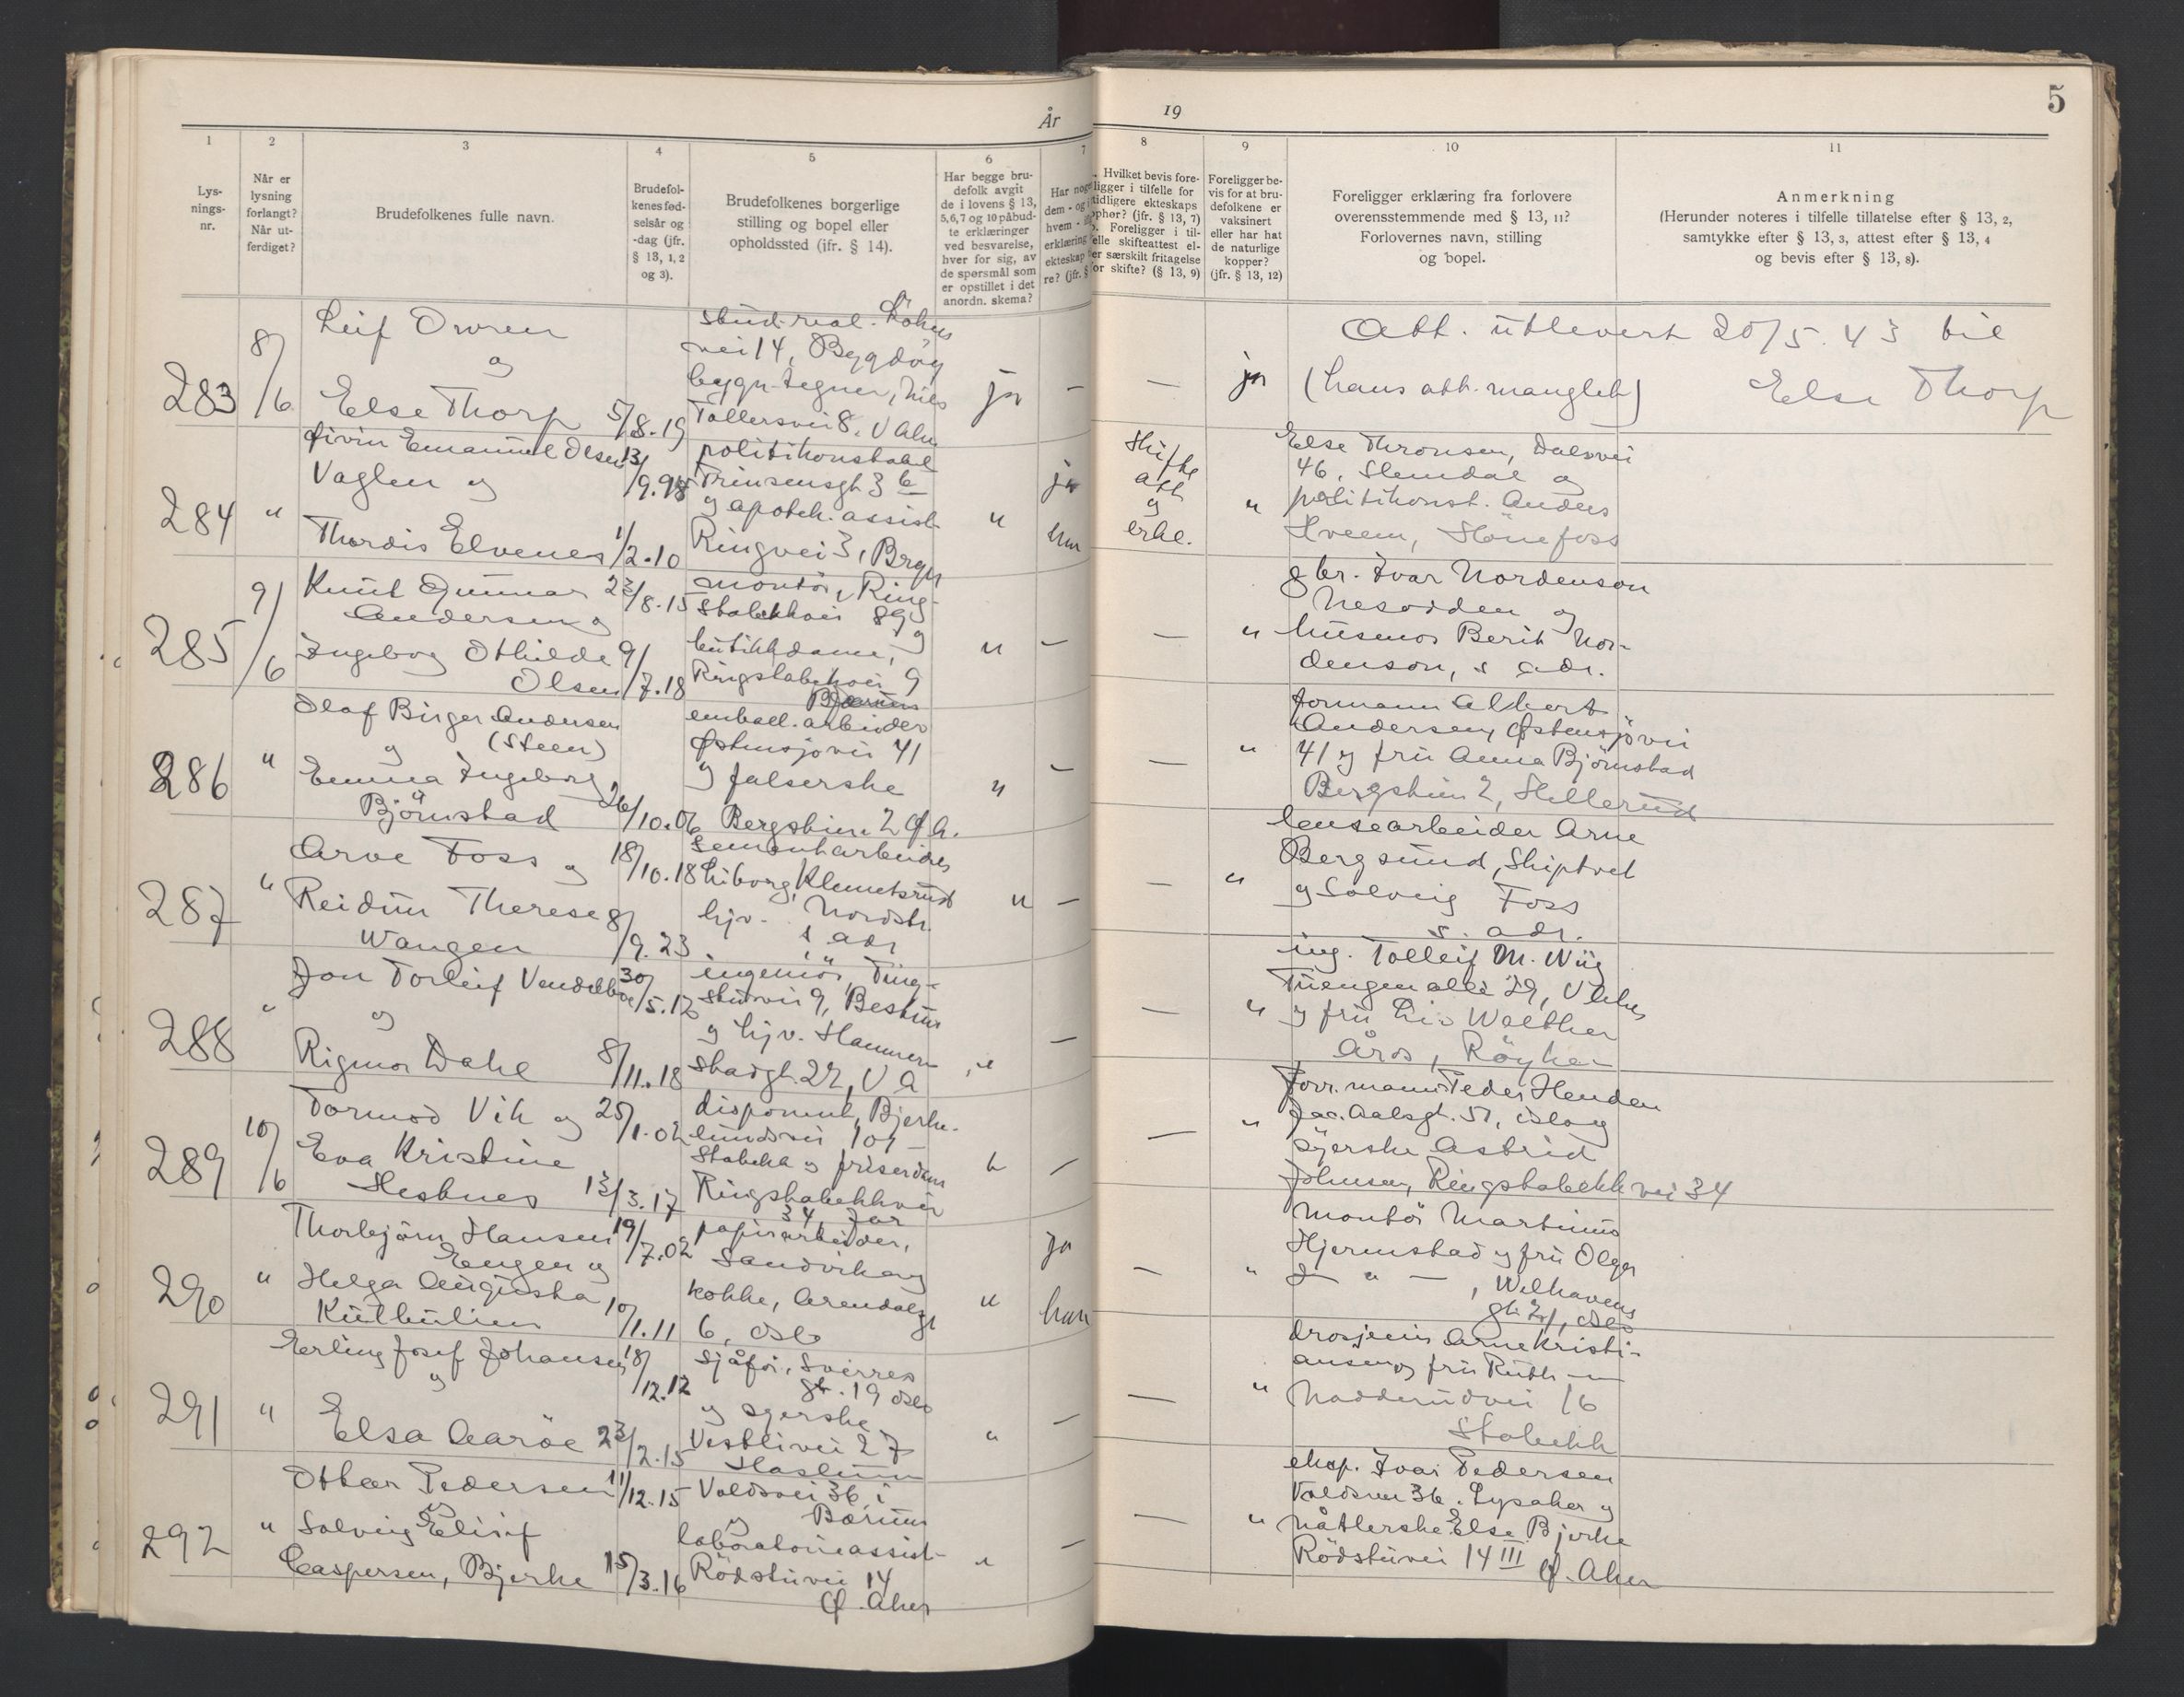 År 19
5
1
Lys-
nings-
nr.
2
Når er
lysning
forlangt?
Når ut-
ferdiget?
3
Brudefolkenes fulle navn.
4
Brudefol-
kenes fød-
selsår og
-dag (jfr.
§ 13, 1, 2
og 3).
5
Brudefolkenes borgerlige
stilling og bopel eller
opholdssted (jfr. § 14).
6
Har begge bru-
defolk avgit
de i lovens § 13,
5, 6, 7 og 10 påbud-
te erklæringer
ved besvarelse,
hver for sig, av
de spørsmål som
er opstillet i det
anordn. skema?
7
Har noge
dem - og i
hvem -
erklæring
ekteskap
re? (jfr. §
8
Hvilket bevis fore-
ligger i tilfelle for
tidligere ekteskaps
ophør? (jfr. § 13, 7)
Foreligger i til-
elle skifteattest el-
er særskilt fritagelse
for skifte? (§ 13, 9)
9
Foreligger be-
vis for at bru-
defolkene er
vaksinert
eller har hat
de naturlige
kopper?
(jfr. § 13, 12)
10
Foreligger erklæring fra forlovere
overensstemmende med § 13, 11?
Forlovernes navn, stilling
og bopel.
11
Anmerkning
(Herunder noteres i tilfelle tillatelse efter § 13, 2,
samtykke efter § 13, 3, attest efter § 13, 4
og bevis efter § 13, 8).
283
8/6
Leif Owren
og
Else Thorp 5/8.19
stud. real.
vei 14, Bygdöy
bygn. tegner, Nils
Tollersvei 8, V Aker
ja — — ja
Att. utlevert 20/5.43 til
(hans att. manglet) Else Thorp
284
"
Øivin Emanuel Olsen 13/9.98
Vaglen og
Thordis Elvenes 1/2.10
politikonstabel
Trinsensgt 3 b
og apotek.assist.
Ringvei 3, Bryn
" ja
hun
Skifte
att
og
erkl.
"
Else Thronsen, Dalsvei
46, Slemdal og
politikonst. Anders
Hveem, Hönefoss
285
9/6
Knut Gunnar 23/8.15
Andersen og
Ingeborg Othilde 9/7.18
Olsen
montör, Ring-
stabekkvei 89 og
butikkdame,
Ringstabekkvei 9
Bærum
" — — "
gbr. Ivar Nordenson
Nesodden og
husmor Berit Nor-
denson, s adr.
286
"
Olaf Birger Andersen
(Steen)
og
Emma Ingeborg
Björnstad 26/10.06
emball.arbeider
Østensjövei 41
og falserske
Bergshien 2 Ø.A.
" — — "
formann Albert
Andersen, Østensjövei
41 og fru Anna Björnstad
Bergshien 2, Hellerud
287
"
Arve Foss og 18/10.18
Reidun Therese 8/9.23
Wangen
sementarbeider
Liborg, Klemetsrud
hjv. Nordstr.
s adr
" — — "
lensearbeider Arne
Bergsund, Skiptvet
og Solveig Foss
s. adr.
288
"
Jon Torleif Vendelboe 30/5.12
og
Rigmor Dahl 8/11.18
ingeniör, Ting-
stuvei 9, Bestum
og hjv. Hammer-
stadgt. 22, V A
" — — "
ing. Tolleif M. Wiig
Tuengen allé 29, V Aker
og fru Liv Walther
Åros, Röyken
289
10/6
Tormod Vik og 25/1.02
Eva Kristine
Hesknes 13/3.17
disponent, Bjerke-
lundsvei 101
Stabekk og friserdame
Ringstabekkvei
34, Jar
" — — "
forr.mann Peder Henden
Jac. Aalsgt. 51, Oslo og
syerske Astrid
Johnsen, Ringstabekkvei 34
290
"
Thorbjörn Hansen 19/7.02
Engen og
Helga Augusta 10/1.11
papirarbeider,
Sandvika og
kokke, Arendalsgt
6, Oslo
" ja
han
— "
montör Martinus
Hjermstad og fru Olga
— " — , Welhavens
gt 21, Oslo
291
"
Erling Josef Johansen 18/12.12
og
Elsa Aaröe 23/2.15
sjåför, Sverres
gt. 19 Oslo
og syerske
Vestlivei 27
Haslum
" — — "
drosjeeier Arne Kristi-
ansen og fru Ruth —
Nadderudvei 16
Stabekk
292
"
Otkar Pedersen 11/12.15
og
Solveig Elisif
Caspersen, Bjerke 15/3.16
Voldsvei 36 i
Bærum
og
laboratorieassist.
Rödstuvei 14
Ø. Aker
" — — "
eksp. Ivar Pedersen
Voldsvei 36, Lysaker og
nåtlerske Else Bjerke
Rödstuvei 14 III Ø. Aker